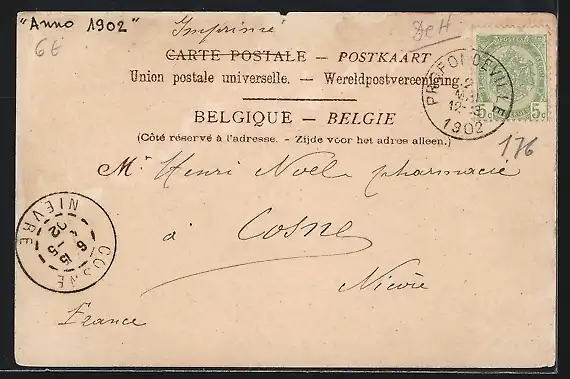 "Anno 1902"
6E
Imprimé
De H
CARTE POSTALE — POSTKAART
Union postale universelle. — Wereldpostvereeniging.
BELGIQUE — BELGIE
(Côté réservé à l'adresse. - Zijde voor het adres alleen.)
PROFONDEVILLE
2
12-
1902
5c 5c
176
Mr Henri Noel pharmacie
à Cosne
Nièvre
France
COSNE
NIEVRE